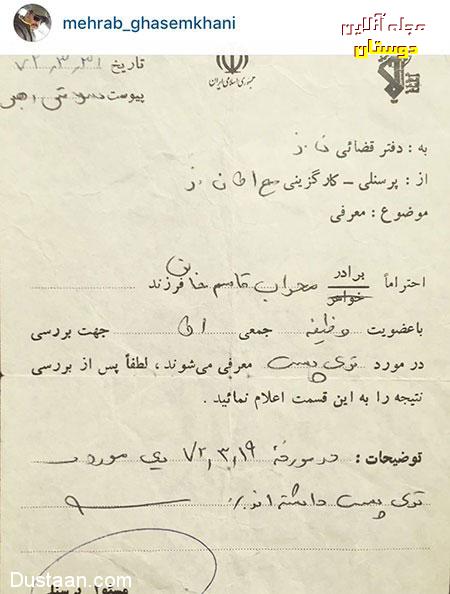 mehrab_ghasemkhani
مجله آنلاین
دوستان
تاریخ ۷۲،۳،۳۱
پیوست
جمهوری اسلامی ایران
به : دفتر قضائی
از : پرسنلی - کارگزینی
موضوع : معرفی
احتراماً برادر محراب قاسم خانی فرزند
خواهر
باعضویت وظیفه جمعی جهت بررسی
در مورد ترک پست معرفی می‌شوند ، لطفاً پس از بررسی
نتیجه را به این قسمت اعلام نمائید .
توضیحات : در مورخهٔ ۷۲،۳،۱۹ یک مورد
ترک پست داشته اند
مسئول پرسنلی
Dustaan.com